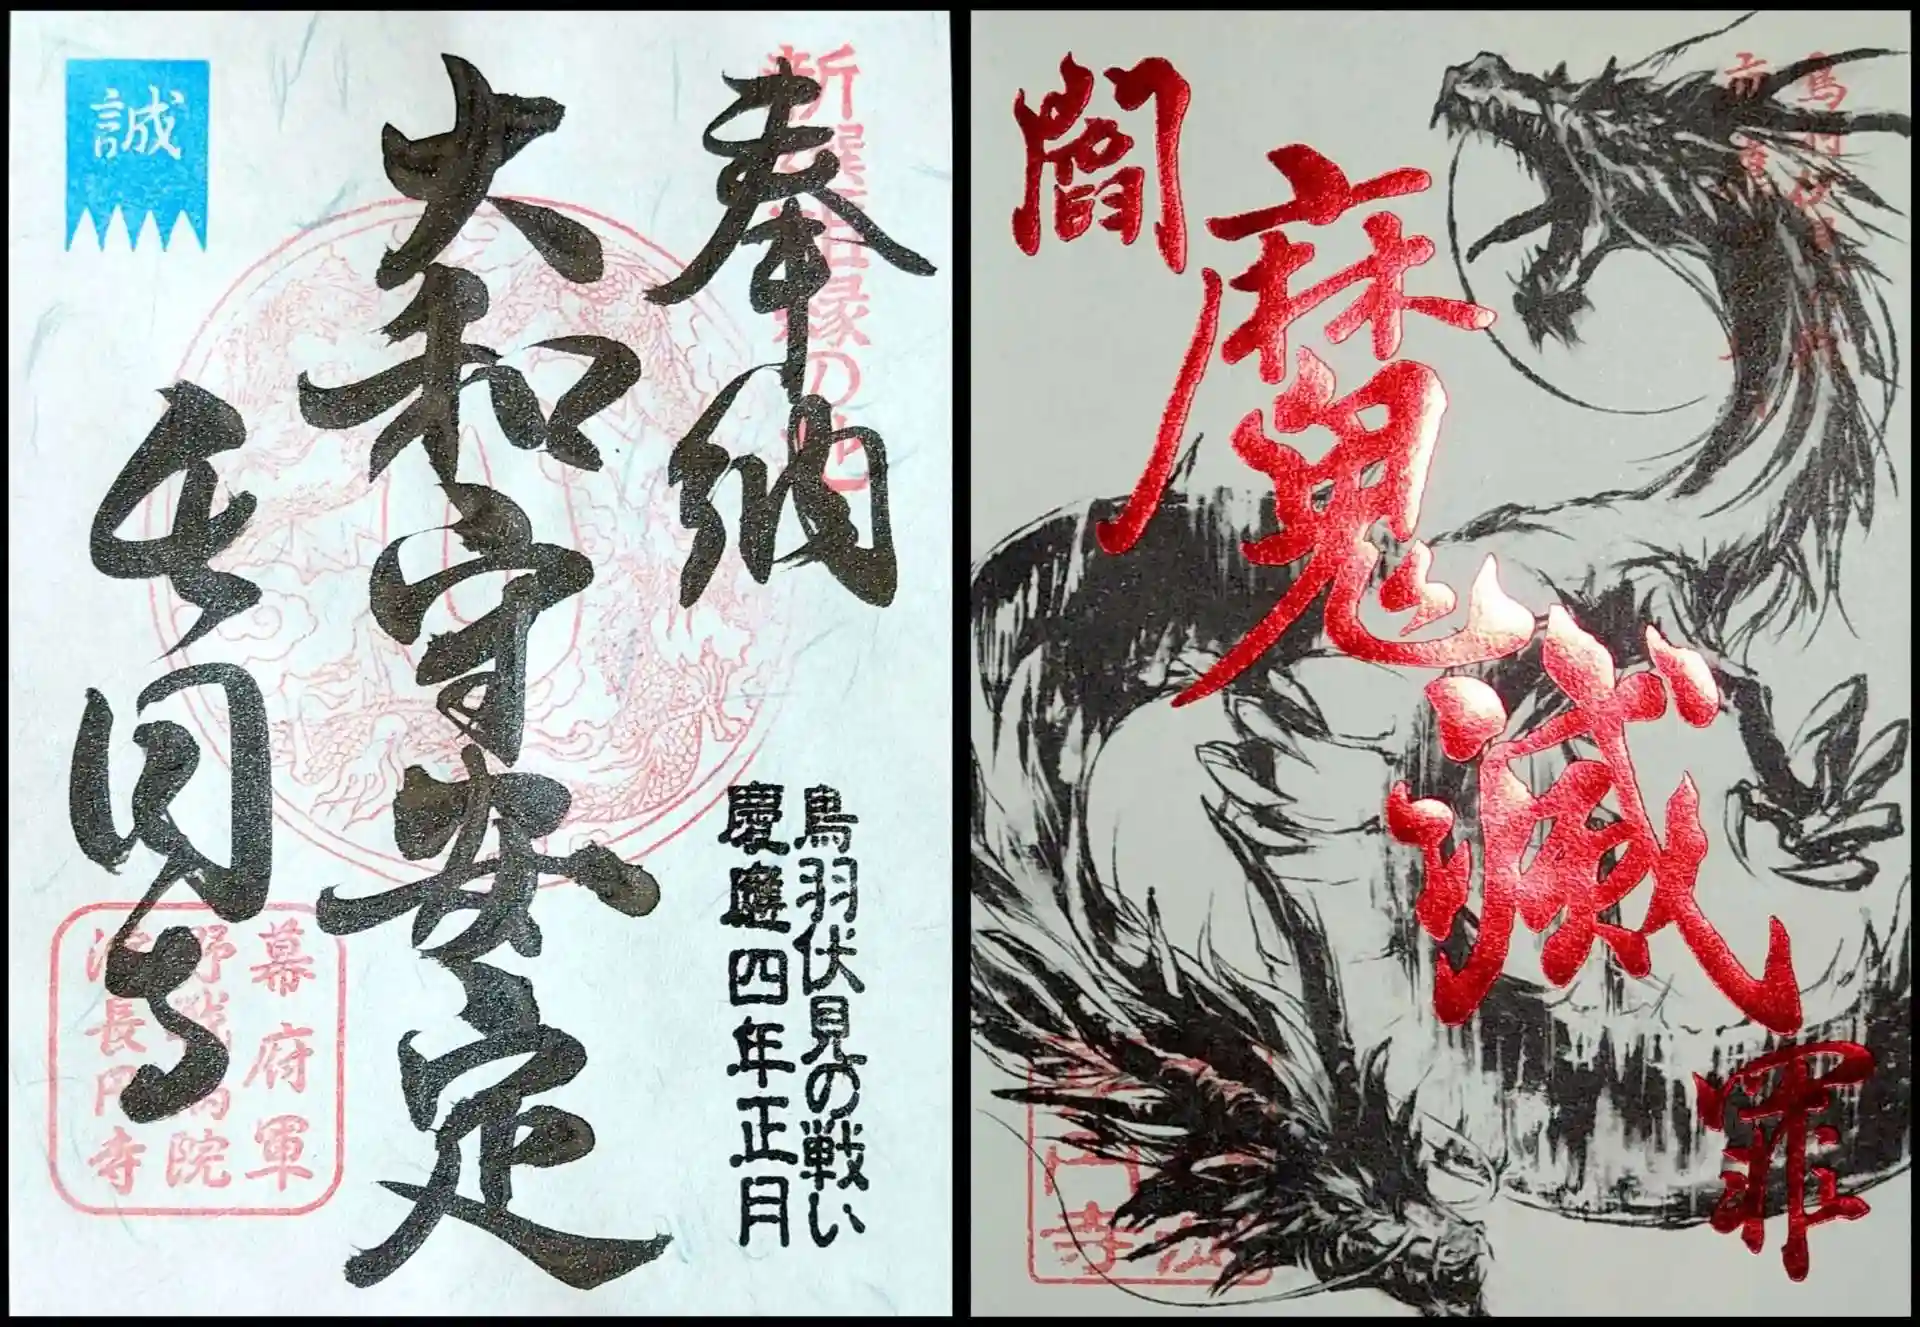 奉納
新選組ゆかりの地
大和守安定
誠
長円寺
鳥羽伏見の戦い
慶應四年正月
幕府軍
野戦病院
長円寺
閻魔
滅罪
寺